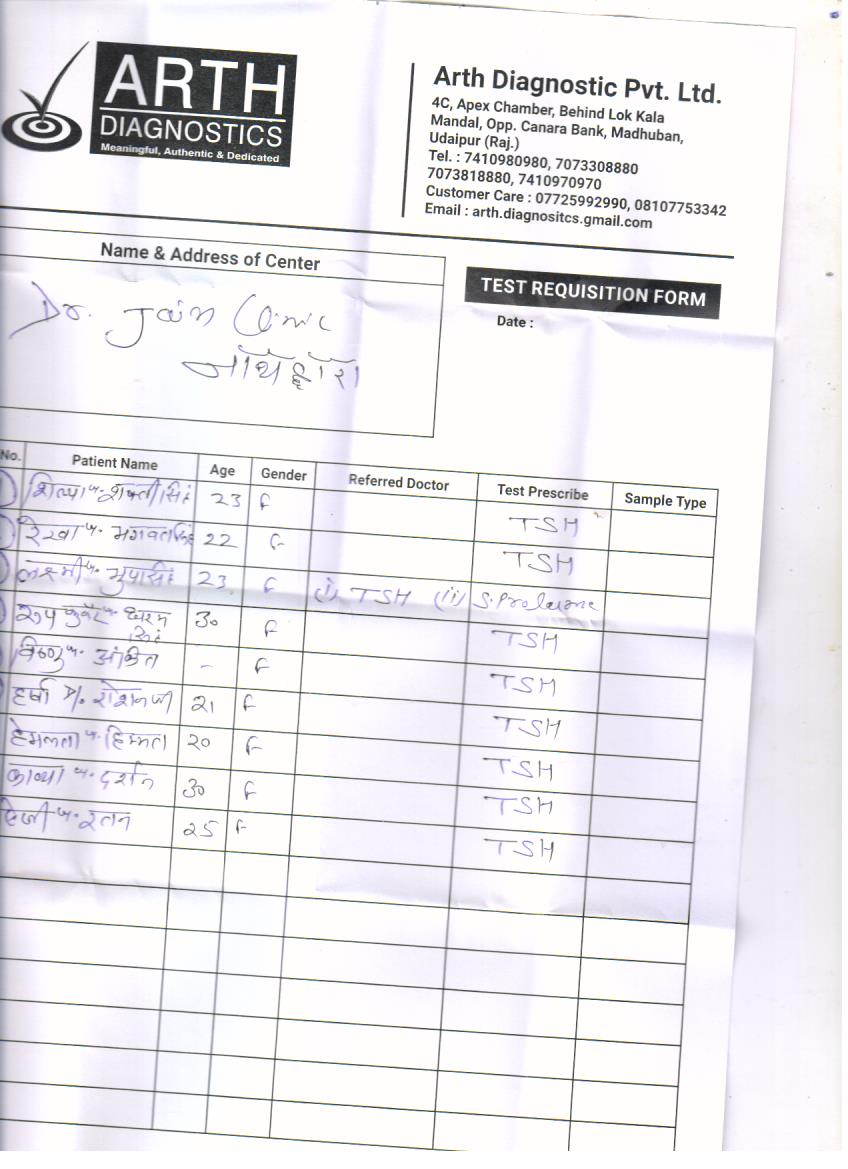 ARTH
DIAGNOSTICS
Meaningful, Authentic & Dedicated
Arth Diagnostic Pvt. Ltd.
4C, Apex Chamber, Behind Lok Kala
Mandal, Opp. Canara Bank, Madhuban,
Udaipur (Raj.)
Tel. : 7410980980, 7073308880
7073818880, 7410970970
Customer Care : 07725992990, 08107753342
Email : arth.diagnositcs.gmail.com
Name & Address of Center
TEST REQUISITION FORM
Date :
Dr. Jain Clinic
No. Patient Name Age Gender Referred Doctor Test Prescribe Sample Type
शिल्पा 23 F TSH
रेखा 22 F TSH
लक्ष्मी 23 F (i) TSH (ii) S.
30 F TSH
- F TSH
हर्षा D/o रोशन जी 21 F TSH
हेमलता 20 F TSH
काव्या दर्शन 30 F TSH
रतन 25 F TSH